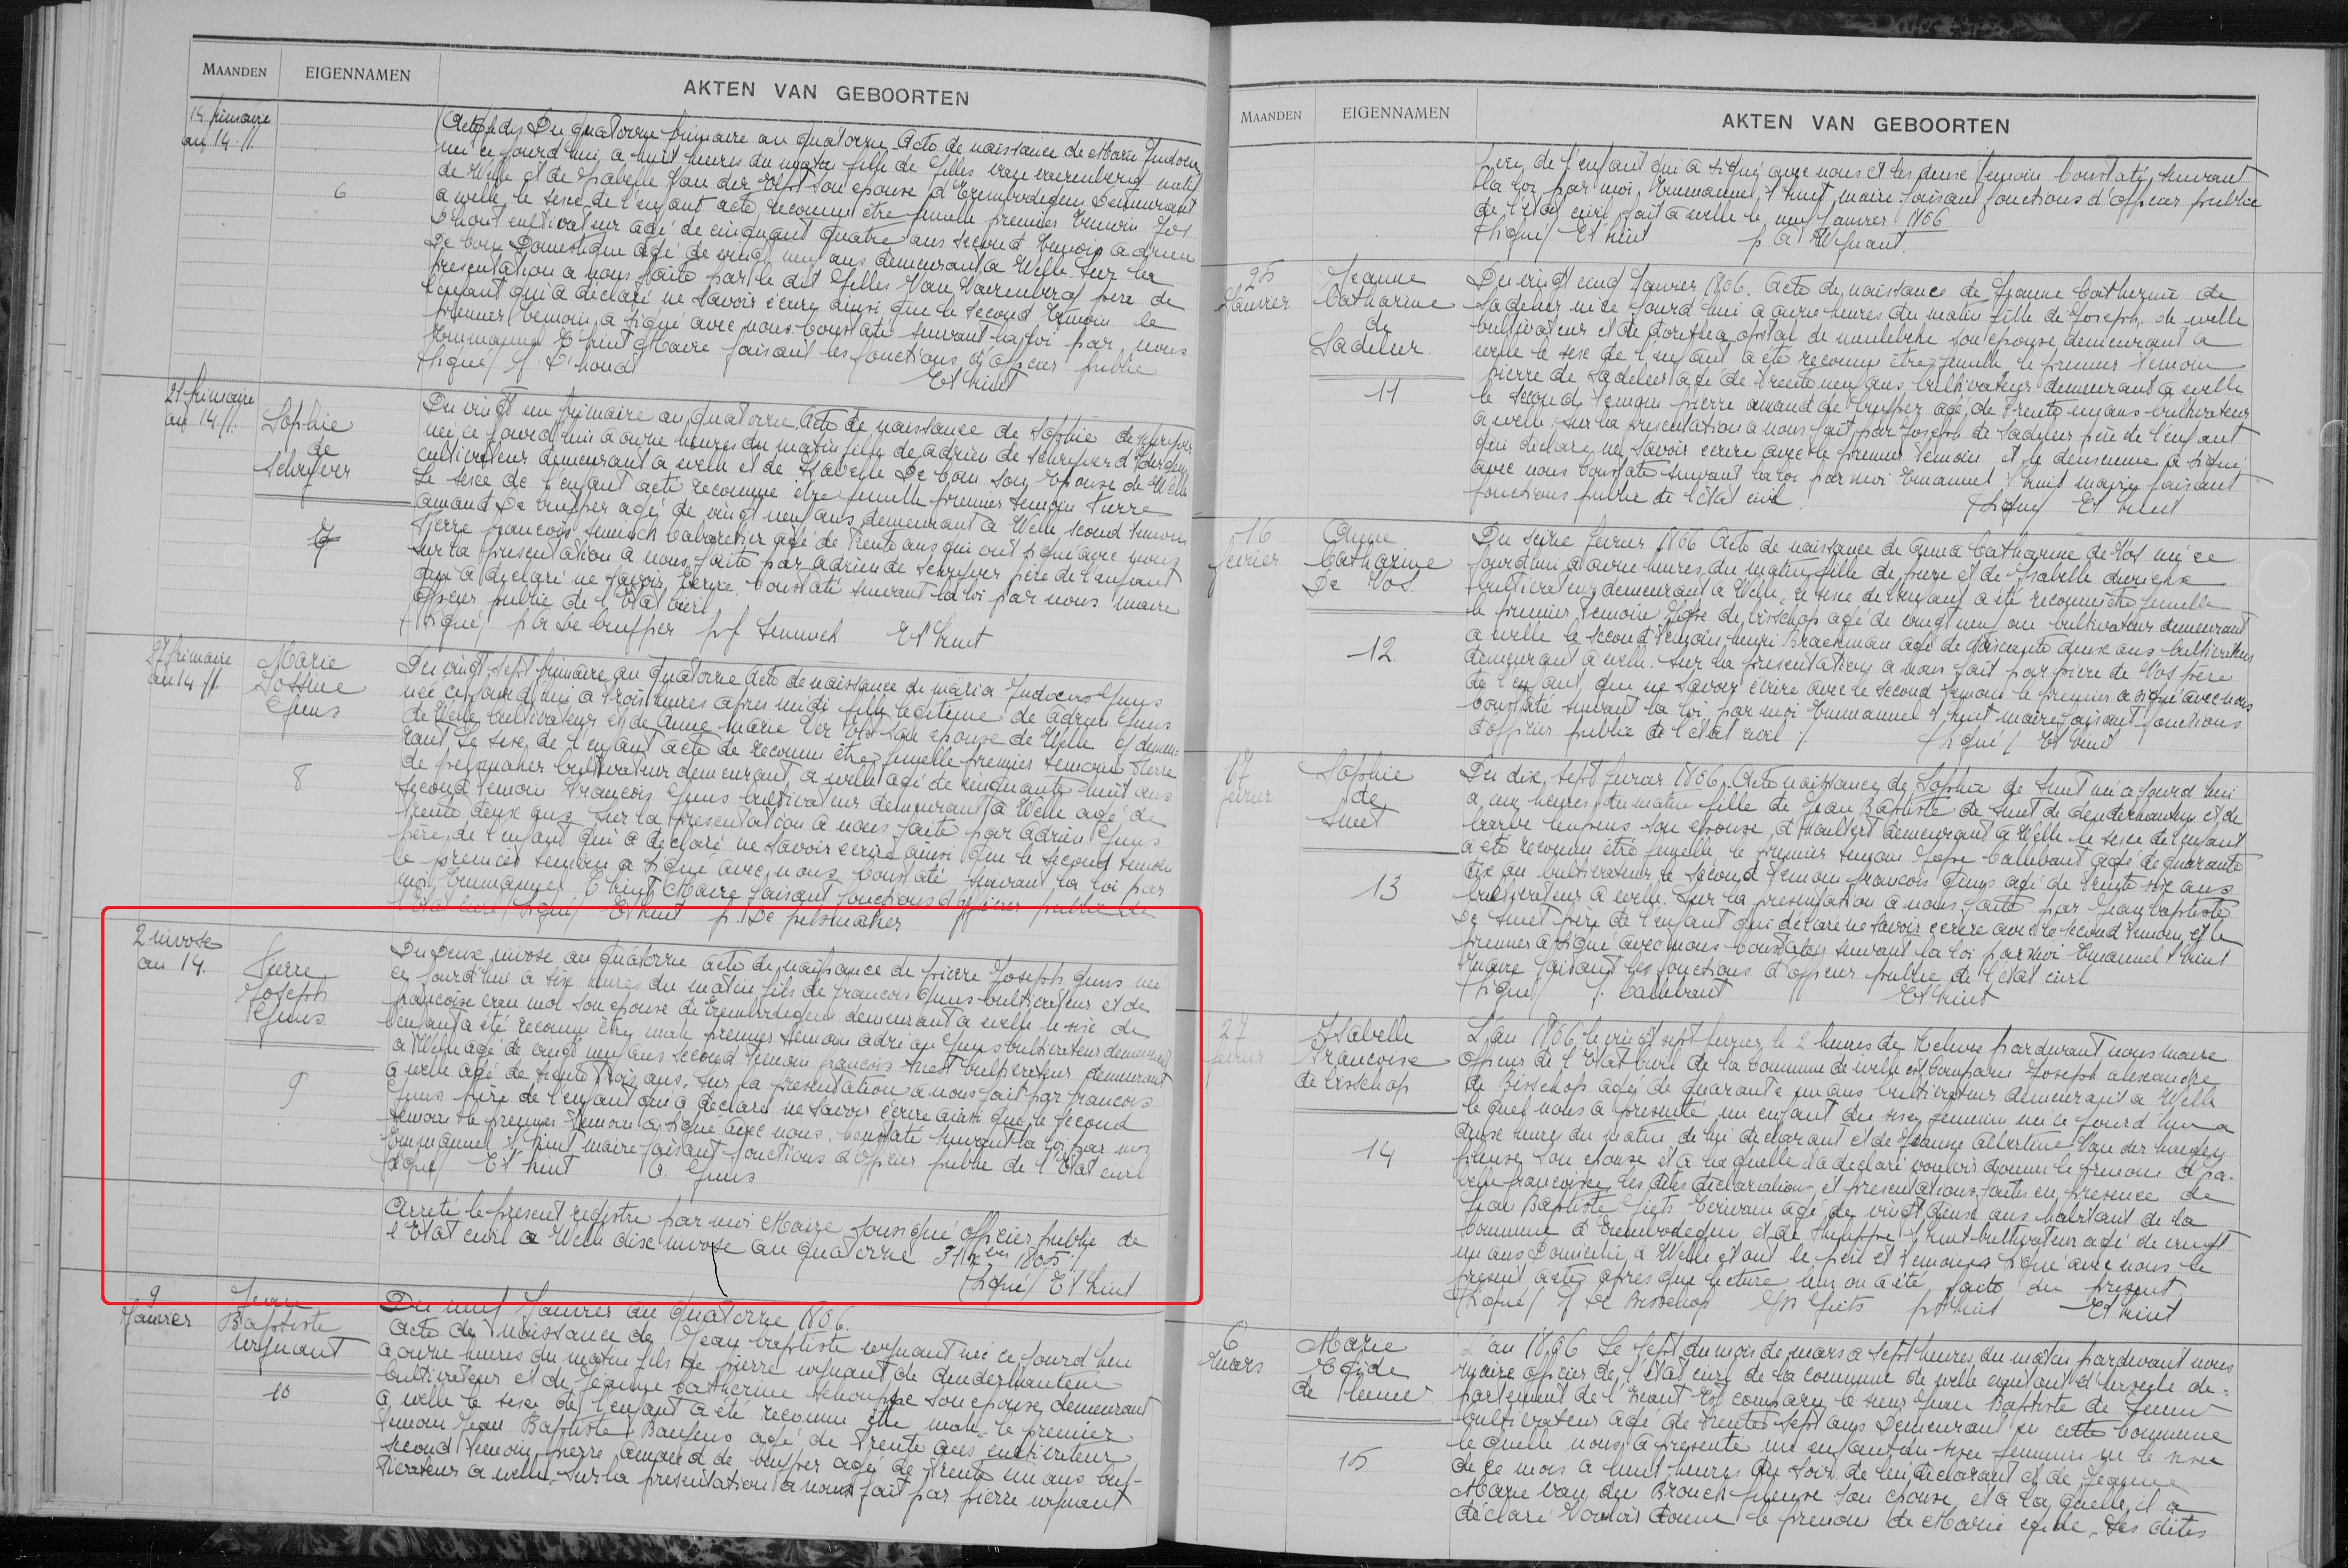 MAANDEN EIGENNAMEN AKTEN VAN GEBOORTEN
14 frimaire
an 14 //.
6
Du quatorze frimaire an quatorze Acte de naissance de Marie
né ce jourd'hui a huit heures du matin fille de Gilles van vaerenberg natif
de Welle et de Isabelle Van der Elst son epouse d'Erembodegem Demeurant
a welle, le sexe de l'enfant acte reconnu être femelle premier temoin Jos
D'hont cultivateur agé de cinquant quatre ans second temoin adrien
De bom Domestique agé de vingt neuf ans demeurant a Welle. Sur la
presentation a nous faite par le dit Gilles Van Vaerenberg pere de
l'enfant qui a déclaré ne savoir écrire ainsi que le second temoin le
premier temoin a signé avec nous. Constaté suivant la loi par nous
Emmanuel T'kint Maire faisant les fonctions d'officier public
(signé) J. D'hondt Et'kint
21 frimaire
an 14 //.
Sophie
de
Schryver
7
Du vingt un frimaire an quatorze Acte de naissance de Sophie de schryver
née ce jourd'hui a onze heures du matin fille de adrien de schryver d'
cultivateur demeurant a welle et de Isabelle De bom son Epouse de Welle
Le sexe de l'enfant acté reconnu être femelle premier temoin Pierre
amand De cuyper agé de vingt neuf ans demeurant a Welle second temoin
Pierre francois cabaretier agé de trente ans qui ont signé avec nous
sur la presentation a nous faite par adrien de schryver père de l'enfant
qui a déclaré ne savoir Ecrire. Constaté suivant la loi par nous maire
officier public de l'Etat civil
(signé) De cuyper Et'kint
27 frimaire
an 14 //.
Marie
Jossine
Guns
8
Du vingt sept frimaire an quatorze Acte de naissance de maria Guns
née ce jourd'hui a trois heures apres midi fille légitime de Adrien Guns
de Welle cultivateur et de Anne Marie Ver Elst son epouse de Welle y demeu-
rant, Le sexe de l'enfant acte de reconnu être femelle premier temoin Pierre
de pelsmaker cultivateur demeurant a welle agé de cinquante huit ans
second temoin François Guns cultivateur demeurant a Welle agé de
trente deux ans sur la presentation a nous faite par Adrien Guns
père de l'enfant qui a déclaré ne savoir ecrire ainsi que le second temoin
le premier temoin a signé avec nous constaté suivant la loi par
moi Emmanuel T'kint Maire faisant fonctions d'officier public de
l'Etat civil (signé) Et'kint p. De pelsmaker
2 nivose
an 14.
Pierre
Joseph
Guns
9
Du Deux nivose an quatorze acte de naissance de pierre Joseph guns né
ce jourd'hui a six heures du matin fils de francois guns cultivateur et de
francoise van mol son epouse de Erembodegem demeurant a welle le sexe de
l'enfant a été reconnu être male premier temoin adrian Guns cultivateur demeurant
a Welle agé de vingt neuf ans second temoin francois smet cultivateur demeurant
a welle agé de trente trois ans. Sur la presentation a nous fait par francois
Guns père de l'enfant qui a déclaré ne savoir écrire ainsi que le second
temoin le premier temoin a signé avec nous. Constaté suivant la loi par moi
Emmanuel T'kint maire faisant fonctions d'officier public de l'Etat civil
(signé) Et'kint A. Guns
Arreté le present registre par moi Maire soussigné officier public de
l'Etat civil a Welle dixe nivose an quatorze 31 Xbre 1805 /.
(signé) Et'kint
9
Janvier
Jean
Baptiste
wynant
10
Du neuf Janvier an quatorze 1806.
Acte de naissance de Jean baptiste wynant né ce jourd'hui
a onze heures du matin fils de pierre wynant de denderhautem
cultivateur et de Jeanne Catherine Schouppe son epouse demeurant
a welle le sexe de l'enfant a été reconnu être male le premier
temoin Jean Baptiste agé de trente ans cultivateur
second temoin pierre Amand de cuyper agé de trente un ans cul-
tivateur a welle. Sur la presentation a nous fait par pierre wynant
MAANDEN EIGENNAMEN AKTEN VAN GEBOORTEN
père de l'enfant qui a signé avec nous et les deux temoin Constaté suivant
la loi par moi, Emmanuel T'kint maire faisant fonctions d'officier public
de l'état civil fait a welle le neuf Janvier 1806
(signé) Et'kint p a Wynant.
25
Janvier
Jeanne
Catharine
de
Sadeleer
11
Du vingt cinq Janvier 1806. Acte de naissance de Jeanne Catherine de
Sadeleer né ce jourd'hui a onze heures du matin fille de Joseph, de welle
cultivateur et de dorothea opstal de son epouse demeurant a
welle le sexe de l'enfant a été reconnu être femelle, le premier temoin
pierre de Sadeleer agé de trente neuf ans cultivateur demeurant a welle
le second temoin pierre amand de cuyper agé de trente un ans cultivateur
a welle. sur la presentation a nous fait par Joseph de Sadeleer père de l'enfant
qui déclare ne savoir écrire avec le premier temoin et le deuxieme a signé
avec nous Constaté suivant la loi par moi Emanuel T'kint mayre faisant
fonctions public de l'état civil (signé) Et'kint
16
fevrier
Anne
Catharine
De Vos
12
Du seize fevrier 1806 Acte de naissance de anna Catharine de Vos né ce
jourdhui a onze heures du matin fille de pierre et de Isabelle
cultivateur demeurant a Welle, le sexe de l'enfant a été reconnu être femelle
le premier temoin Josse de bisschop agé de vingt neuf ans cultivateur demeurant
a welle le second temoin henri Braeckman agé de soixante deux ans cultivateur
demeurant a welle. Sur la presentation a nous fait par pierre de Vos père
de l'enfant, que ne savoir écrire avec le second temoin le premier a signé avec nous
constaté suivant la loi par moi Emmanuel T'kint maire faisant fonctions
d'officier public de l'état civil /. (signé) Et'kint
17
fevrier
Sophie
de
Smet
13
Du dix sept fevrier 1806, Acte naissance de Sophie de Smet né a jourd'hui
a heures du matin fille de Jean Baptiste de Smet de denderhautem et de
son epouse, d'haeltert demeurant a Welle le sexe de l'enfant
a été reconnu être femelle le premier temoin Josse Callebaut agé de quarante
six an cultivateur le second temoin francois Guns agé de trente six ans
cultivateur a welle. Sur la presentation a nous faite par Jean baptiste
De Smet père de l'enfant qui déclare ne savoir écrire avec le second temoin, et le
premier a signé avec nous Constaté suivant la loi par moi Emanuel T'kint
maire faisant les fonctions d'officier public de l'état civil
(signé) J. Callebaut Et'kint
27
fevrier
Isabelle
Francoise
de Bisschop
14
L'an 1806, le vingt sept fevrier, le 2 heures de relevée pardevant nous maire
officier de l'Etat Civil de la Commune de welle est Comparu Joseph alexandre
de Bisschop agé de quarante un ans cultivateur demeurant a Welle
le quel nous a presenté un enfant du sexe feminin né ce jourd'hui a
deux heures du matin de lui declarant et de Jeanne Albertine Van der
son epouse et a laquelle il a déclaré vouloir donner le prenom d'Isa-
belle francoise, les dites declarations et presentations faites en presence de
Jean Baptiste Gies Ecrivain agé de vingt deux ans habitant de la
Commune d'Erembodegem et de Philippe T'kint cultivateur agé de vingt
un ans Domicilié a Welle et ont le père et temoins signé avec nous le
present acte apres que lecture leur on a été faite du present
(signé) J De Bisschop p T'kint Et'kint
6
Mars
Marie
Egide
de
15
L'an 1806 Le sept du mois de mars a sept heures du matin pardevant nous
maire officier de l'état civil de la commune de welle canton d' de-
partement de l'Escaut Est comparu le sieur Jean Baptiste de
cultivateur agé de trente sept ans Demeurant en cette Commune
le quelle nous a presenté un enfant du sexe feminin né le
de ce mois a huit heures du soir de lui declarant et de Jeanne
Marie Van den Brouck son epouse et a la quelle il a
déclaré vouloir donner le prenom de Marie egide. Les dites